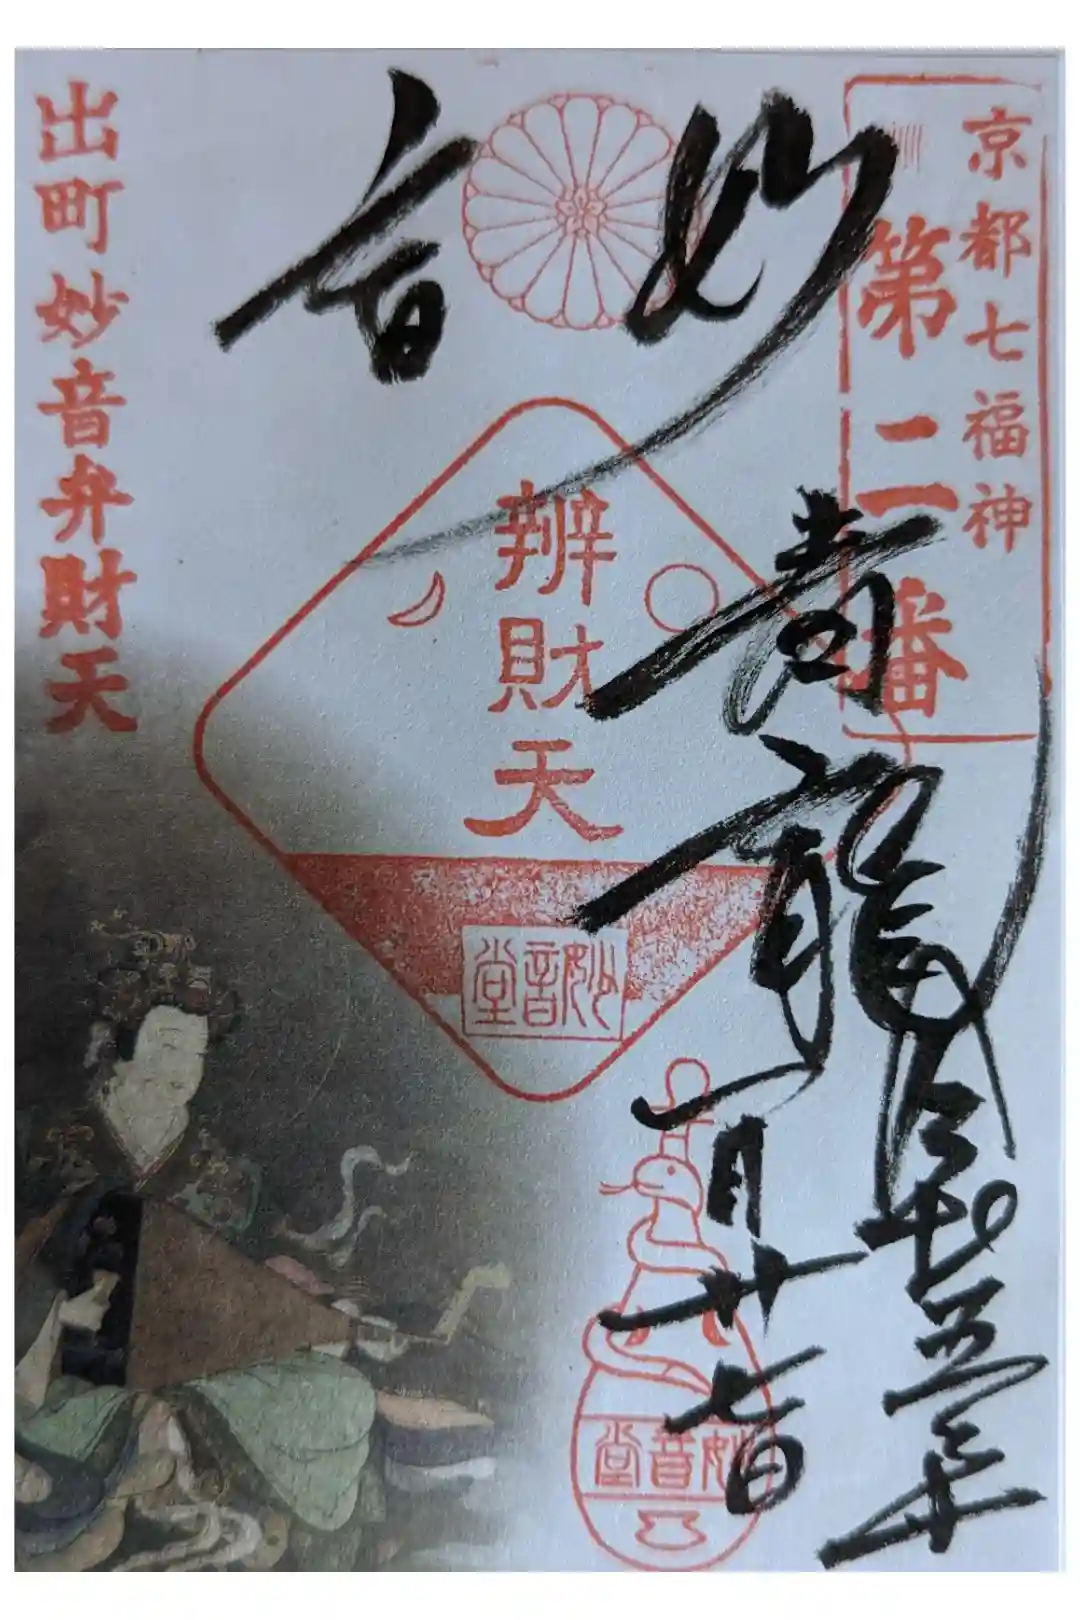 京都七福神
第二番
妙音
青龍
令和五年
一月廿七日
辨財天
妙音堂
妙音堂
出町妙音弁財天